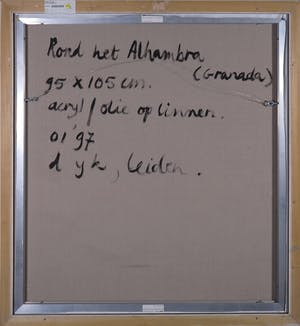 Rond het Alhambra
(Granada)
95 x 105 cm.
acryl / olie op linnen.
01 '97
d yk, leiden.